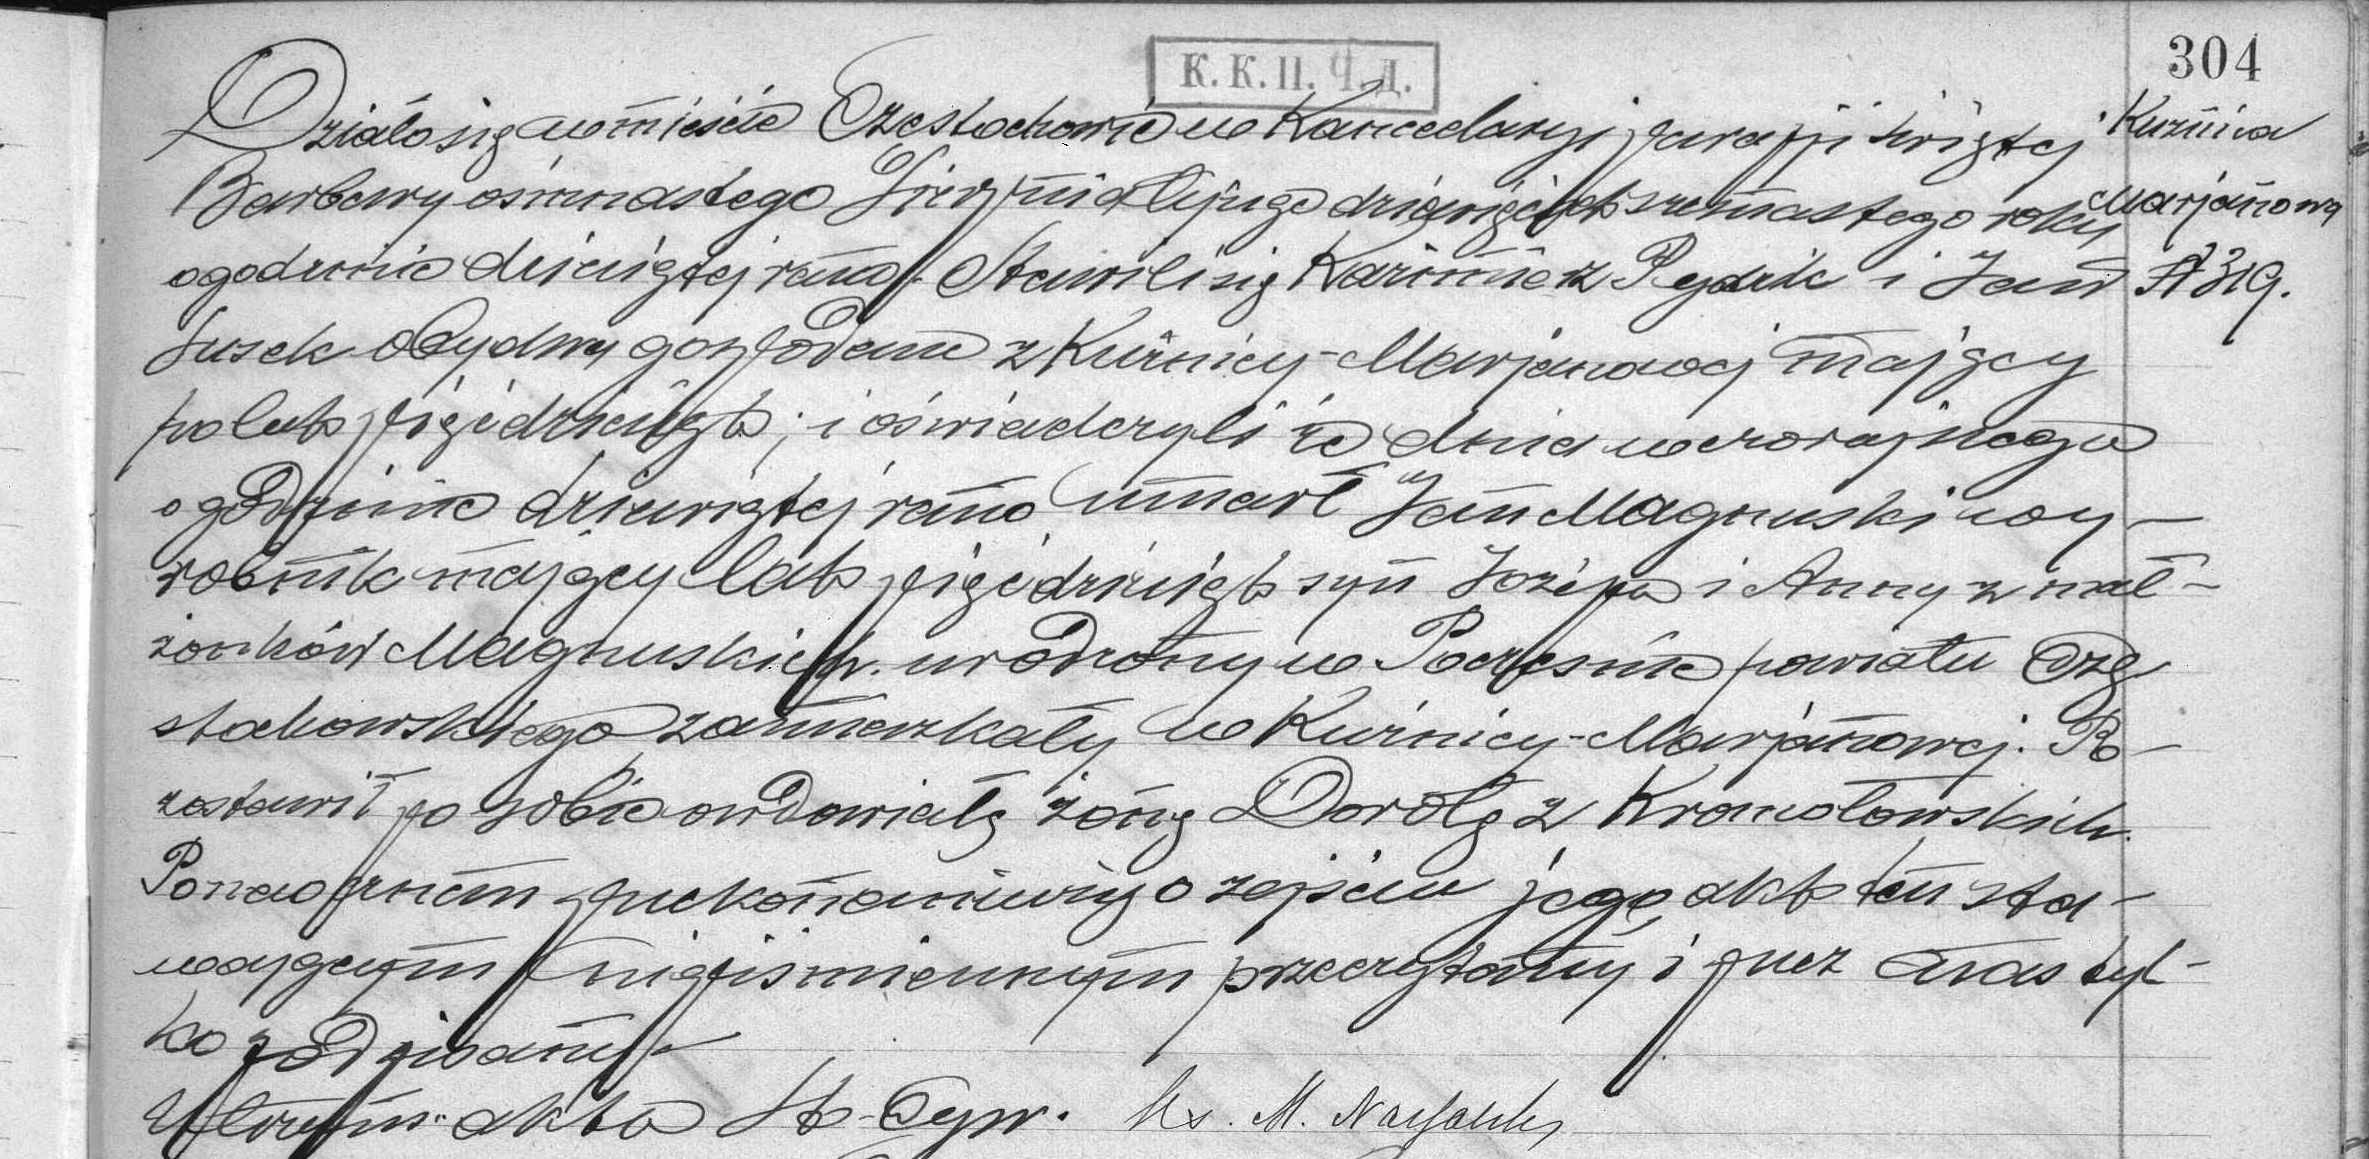 К. К. П. Ч. Д.
304
Działo się w mieście Częstochowie w Kancelaryi parafji świętej
Barbary ośmnastego dziewięćset szesnastego roku
o godzinie dziesiątej rano. Stawili się Kazimierz Pydzik i Jan
Jusek obydwaj gospodarze z Kuźnicy-Marjanowej mający
po lat pięćdziesiąt; i oświadczyli że dnia wczorajszego
o godzinie dziewiątej rano umarł Jan Magnuski wy-
robnik mający lat pięćdziesiąt syn Józefa i Anny z mał-
żonków Magnuskich. urodzony w Poczesnie powiatu Czę
stochowskiego zamieszkały w Kuźnicy-Marjanowej. Po-
zostawił po sobie owdowiałą żonę Dorotę z Kromołowskich.
Po naocznem przekonaniu się o zejściu jego, akt ten sta-
wającym niepiśmiennym przeczytany i przez nas tyl-
ko podpisany.
Utrzym. akta St. Cyw. Ks. M.
Kuźnica
Marjanowa
№ 319.